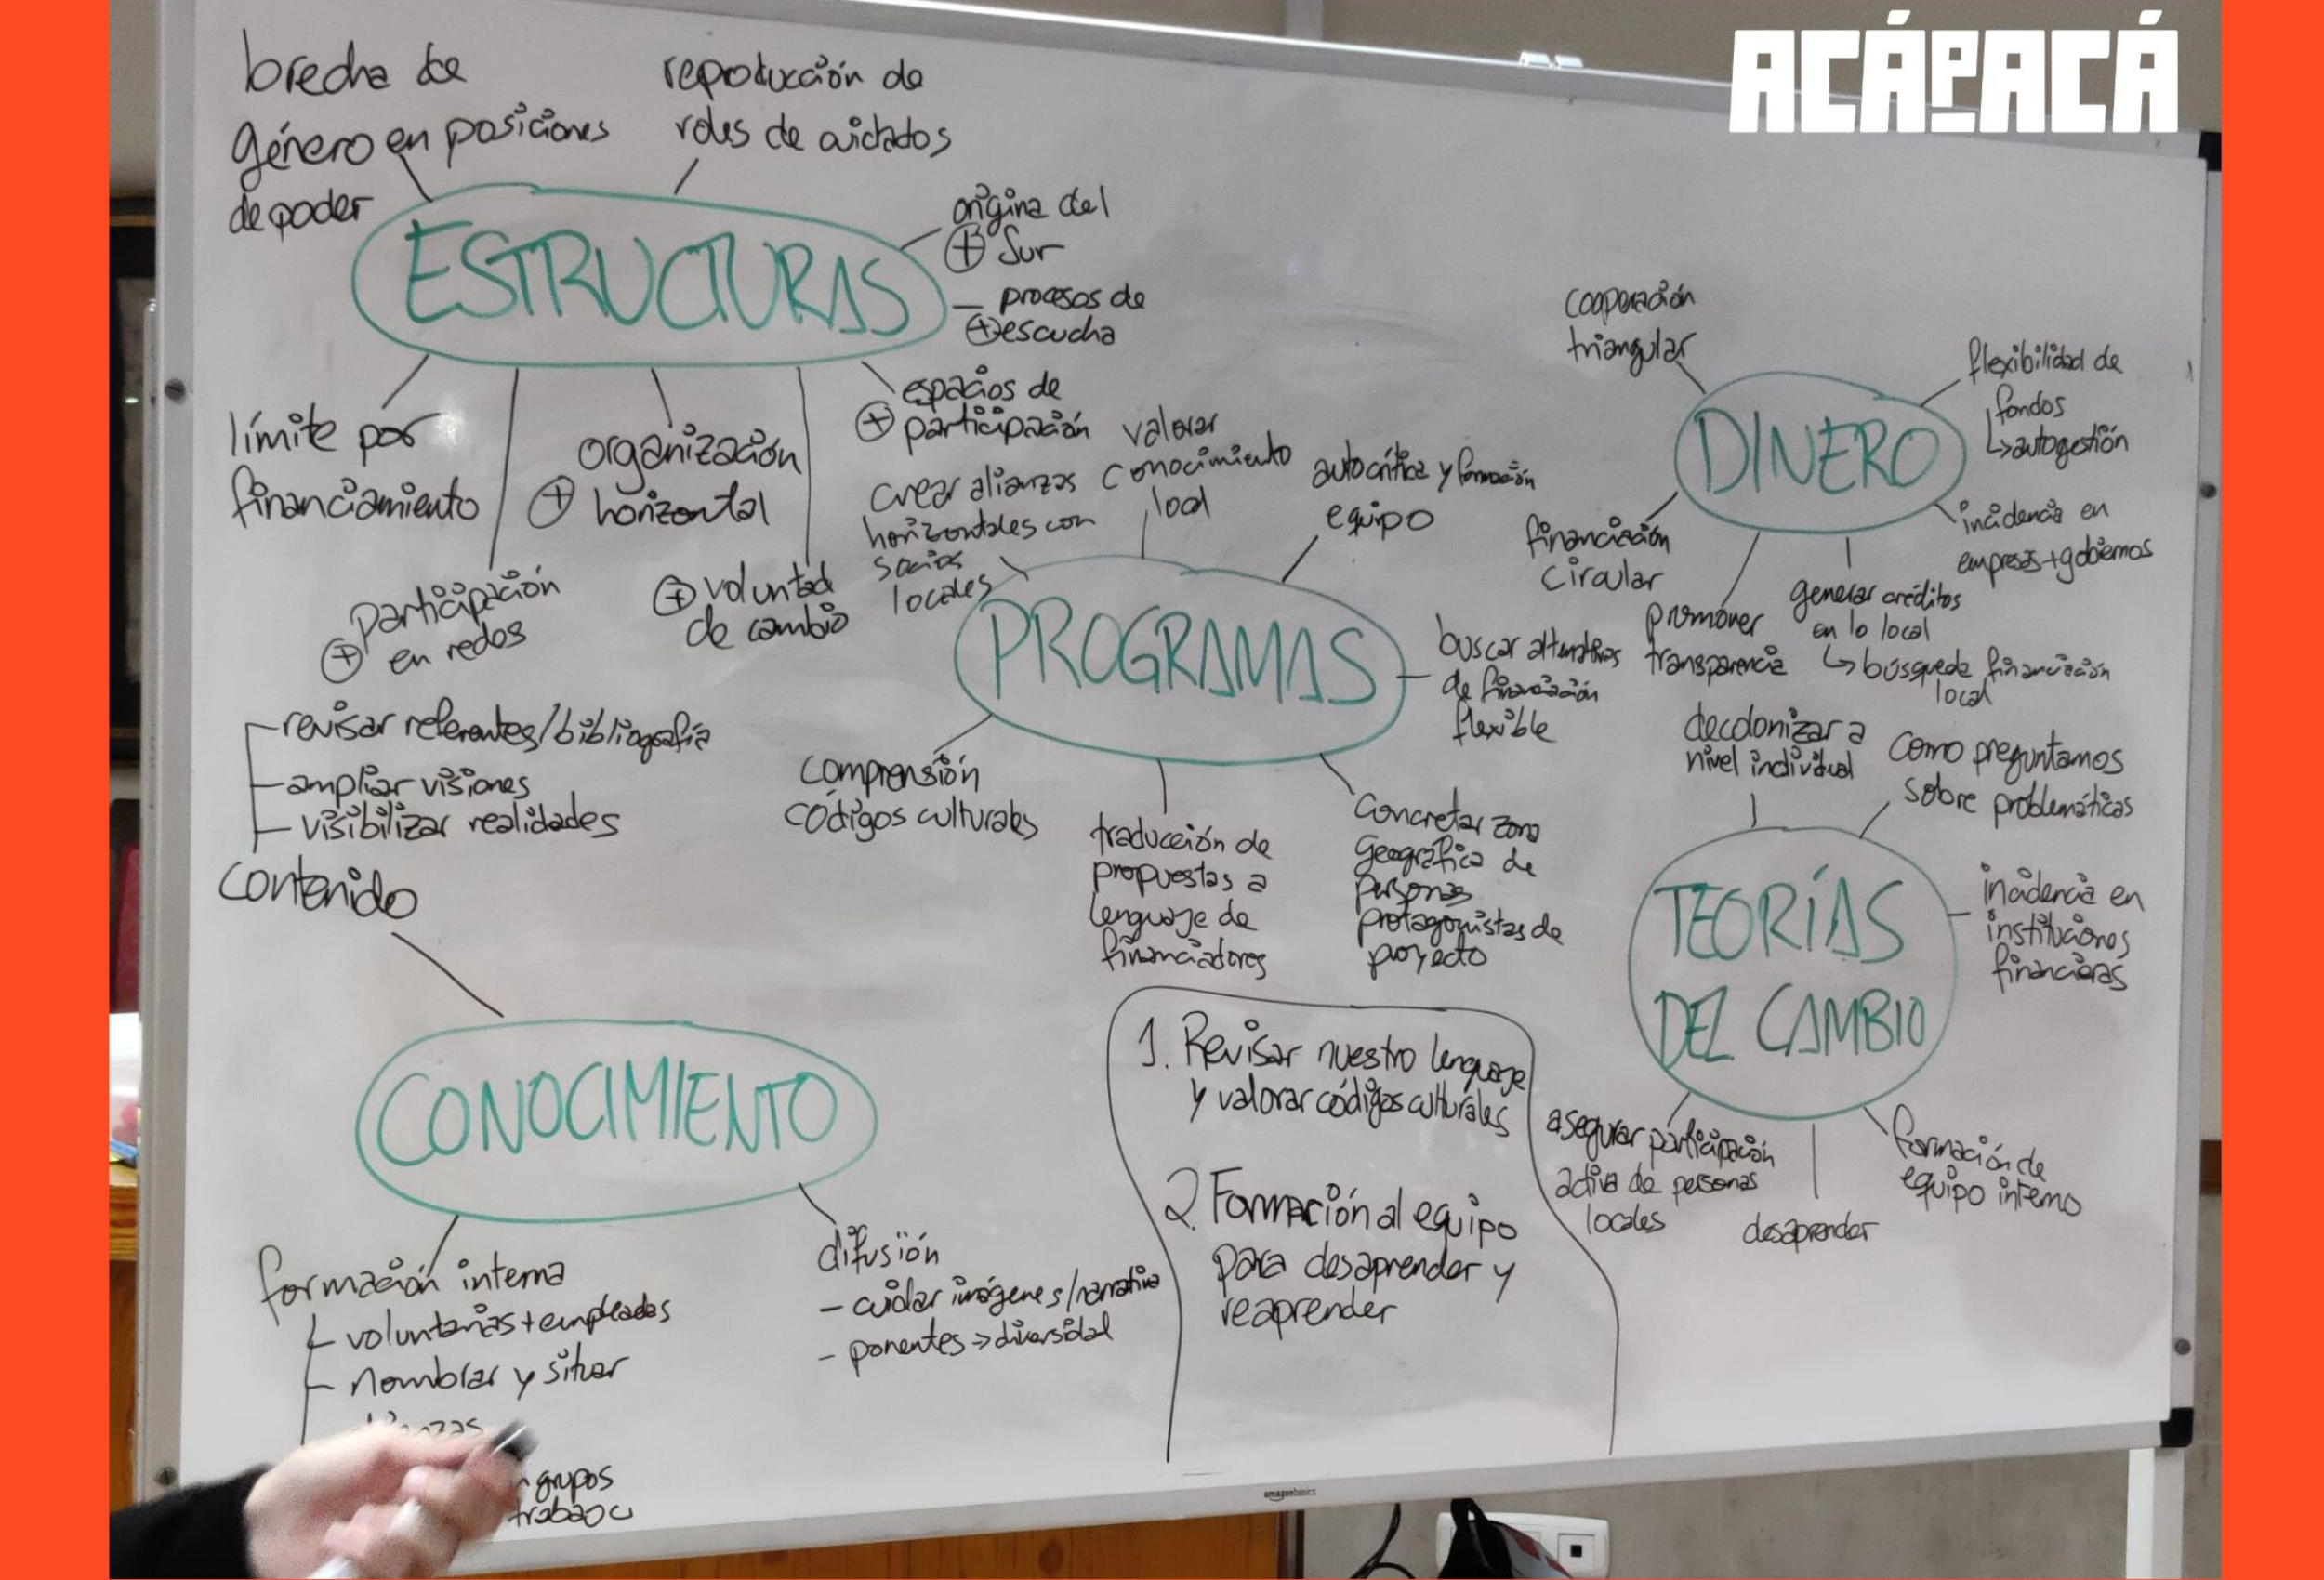 ACÁPACÁ
brecha de
género en posiciones
de poder
reproducción de
roles de cuidados
ESTRUCTURAS
origina del
+ Sur
- procesos de
+ escucha
espacios de
+ participación
límite por
financiamiento
+ organización
horizontal
participación
+ en redes
+ voluntad
de cambio
crear alianzas
horizontales con
socios
locales
valorar
conocimiento
local
autocrítica y formación
equipo
PROGRAMAS
buscar alternativas
de financiación
flexible
comprensión
códigos culturales
traducción de
propuestas a
lenguaje de
financiadores
concretar zona
geográfica de
personas
protagonistas de
proyecto
cooperación
triangular
DINERO
flexibilidad de
fondos
↳ autogestión
incidencia en
empresas + gobiernos
financiación
circular
promover
transparencia
generar créditos
en lo local
↳ búsqueda financiación
local
decolonizar a
nivel individual
como preguntamos
sobre problemáticas
TEORÍAS
DEL CAMBIO
incidencia en
instituciones
financieras
asegurar participación
activa de personas
locales
desaprender
formación de
equipo interno
- revisar referentes/bibliografía
- ampliar visiones
- visibilizar realidades
contenido
CONOCIMIENTO
formación interna
- voluntarias + empleadas
- nombrar y situar
grupos
difusión
- cuidar imágenes/narrativa
- ponentes → diversidad
1. Revisar nuestro lenguaje
y valorar códigos culturales
2. Formación al equipo
para desaprender y
reaprender
amazonbasics